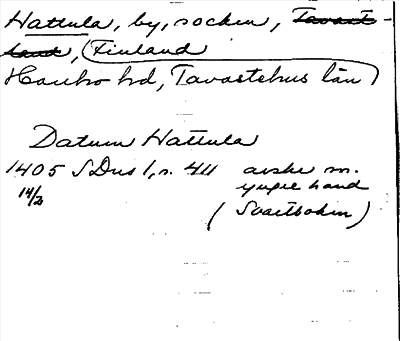 Hattula, by, socken, Tavast-
land, (Finland
Hauho hd, Tavastehus län)
Datum Hattula
1405 SDns 1, s. 411 avskr m.
14/2 yngre hand
(Svartboken)